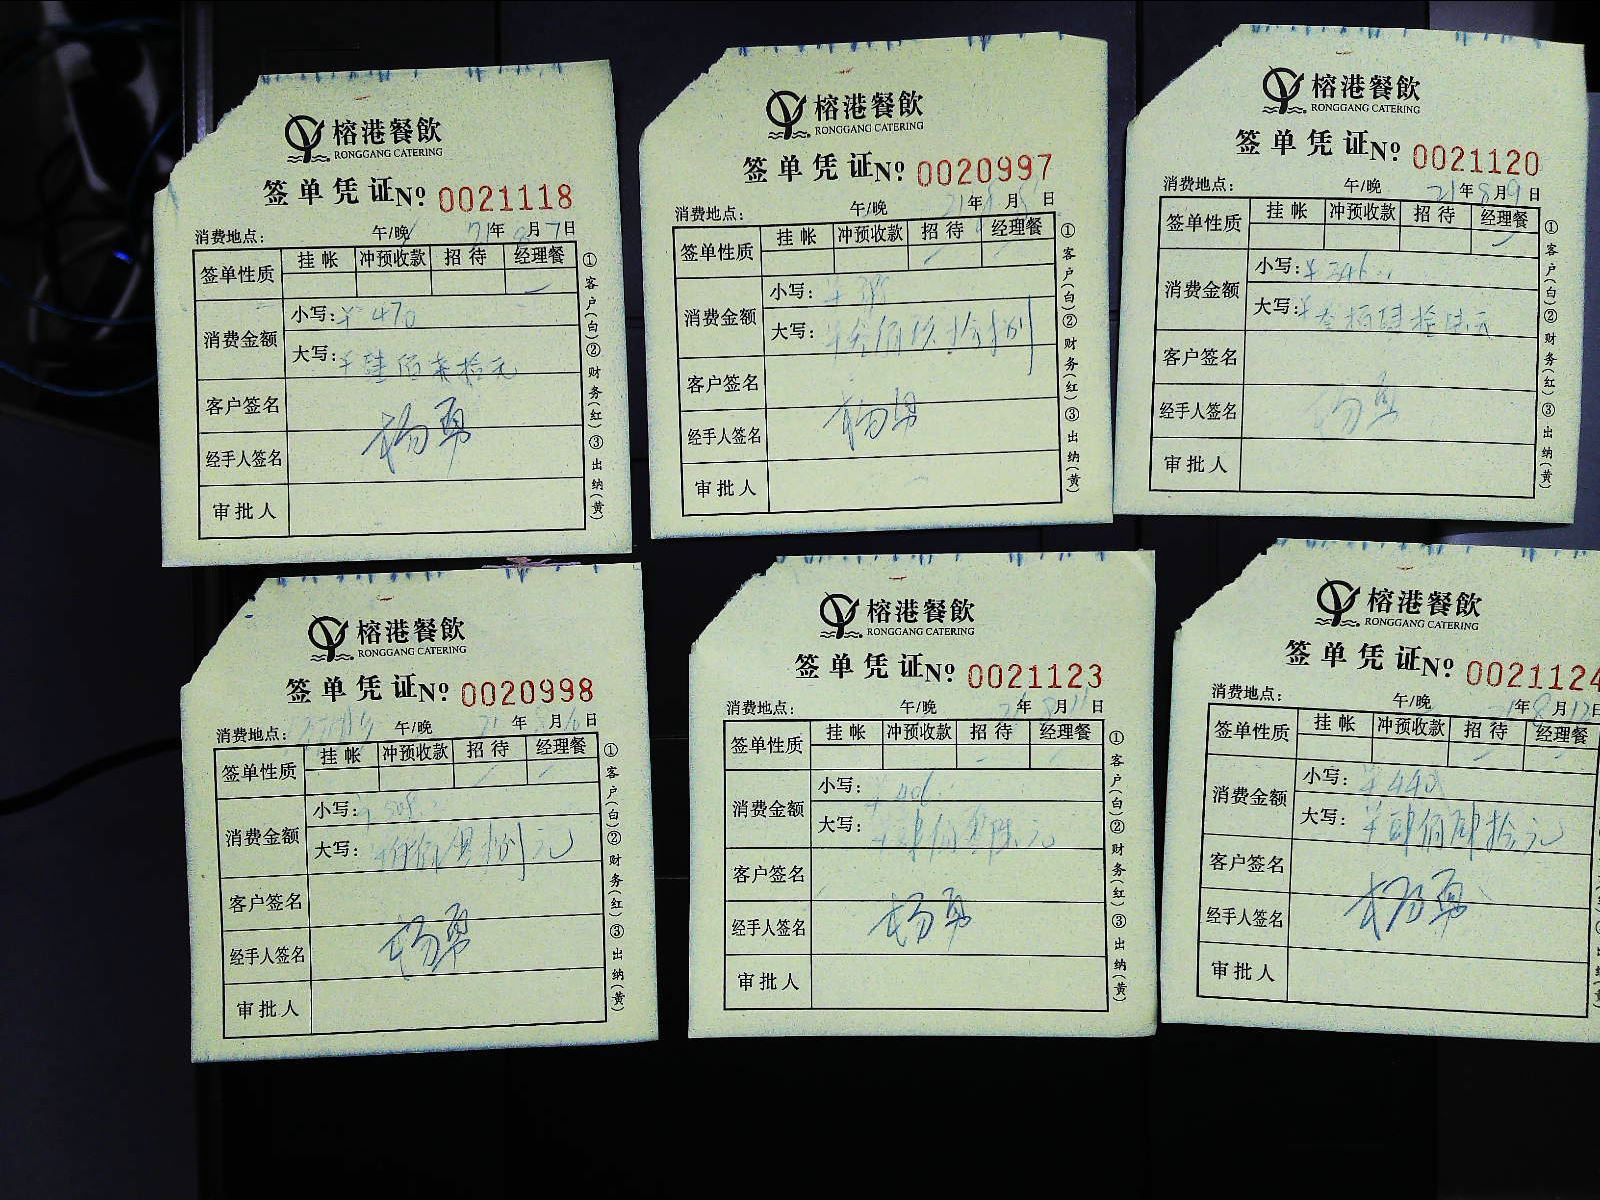 榕港餐飲
RONGGANG CATERING
签单凭证 No 0021118
消费地点: 午/晚 21年8月7日
签单性质 挂帐 冲预收款 招待 经理餐
消费金额 小写: ¥470
大写: 佰柒拾元
客户签名
经手人签名 杨勇
审批人
①客户(白)②财务(红)③出纳(黄)
榕港餐飲
RONGGANG CATERING
签单凭证 No 0020997
消费地点: 午/晚 21年8月 日
签单性质 挂帐 冲预收款 招待 经理餐
消费金额 小写: ¥
大写: 佰玖拾捌
客户签名
经手人签名 杨勇
审批人
①客户(白)②财务(红)③出纳(黄)
榕港餐飲
RONGGANG CATERING
签单凭证 No 0021120
消费地点: 午/晚 21年8月9日
签单性质 挂帐 冲预收款 招待 经理餐
消费金额 小写: ¥346
大写: ¥叁佰肆拾陆元
客户签名
经手人签名 杨勇
审批人
①客户(白)②财务(红)③出纳(黄)
榕港餐飲
RONGGANG CATERING
签单凭证 No 0020998
消费地点: 午/晚 21年 月6日
签单性质 挂帐 冲预收款 招待 经理餐
消费金额 小写: ¥508
大写: ¥伍佰零捌元
客户签名
经手人签名 杨勇
审批人
①客户(白)②财务(红)③出纳(黄)
榕港餐飲
RONGGANG CATERING
签单凭证 No 0021123
消费地点: 午/晚 21年8月11日
签单性质 挂帐 冲预收款 招待 经理餐
消费金额 小写: ¥406
大写: ¥肆佰零陆元
客户签名
经手人签名 杨勇
审批人
①客户(白)②财务(红)③出纳(黄)
榕港餐飲
RONGGANG CATERING
签单凭证 No 0021124
消费地点: 午/晚 21年8月12日
签单性质 挂帐 冲预收款 招待 经理餐
消费金额 小写: ¥440
大写: ¥肆佰肆拾元
客户签名
经手人签名 杨勇
审批人